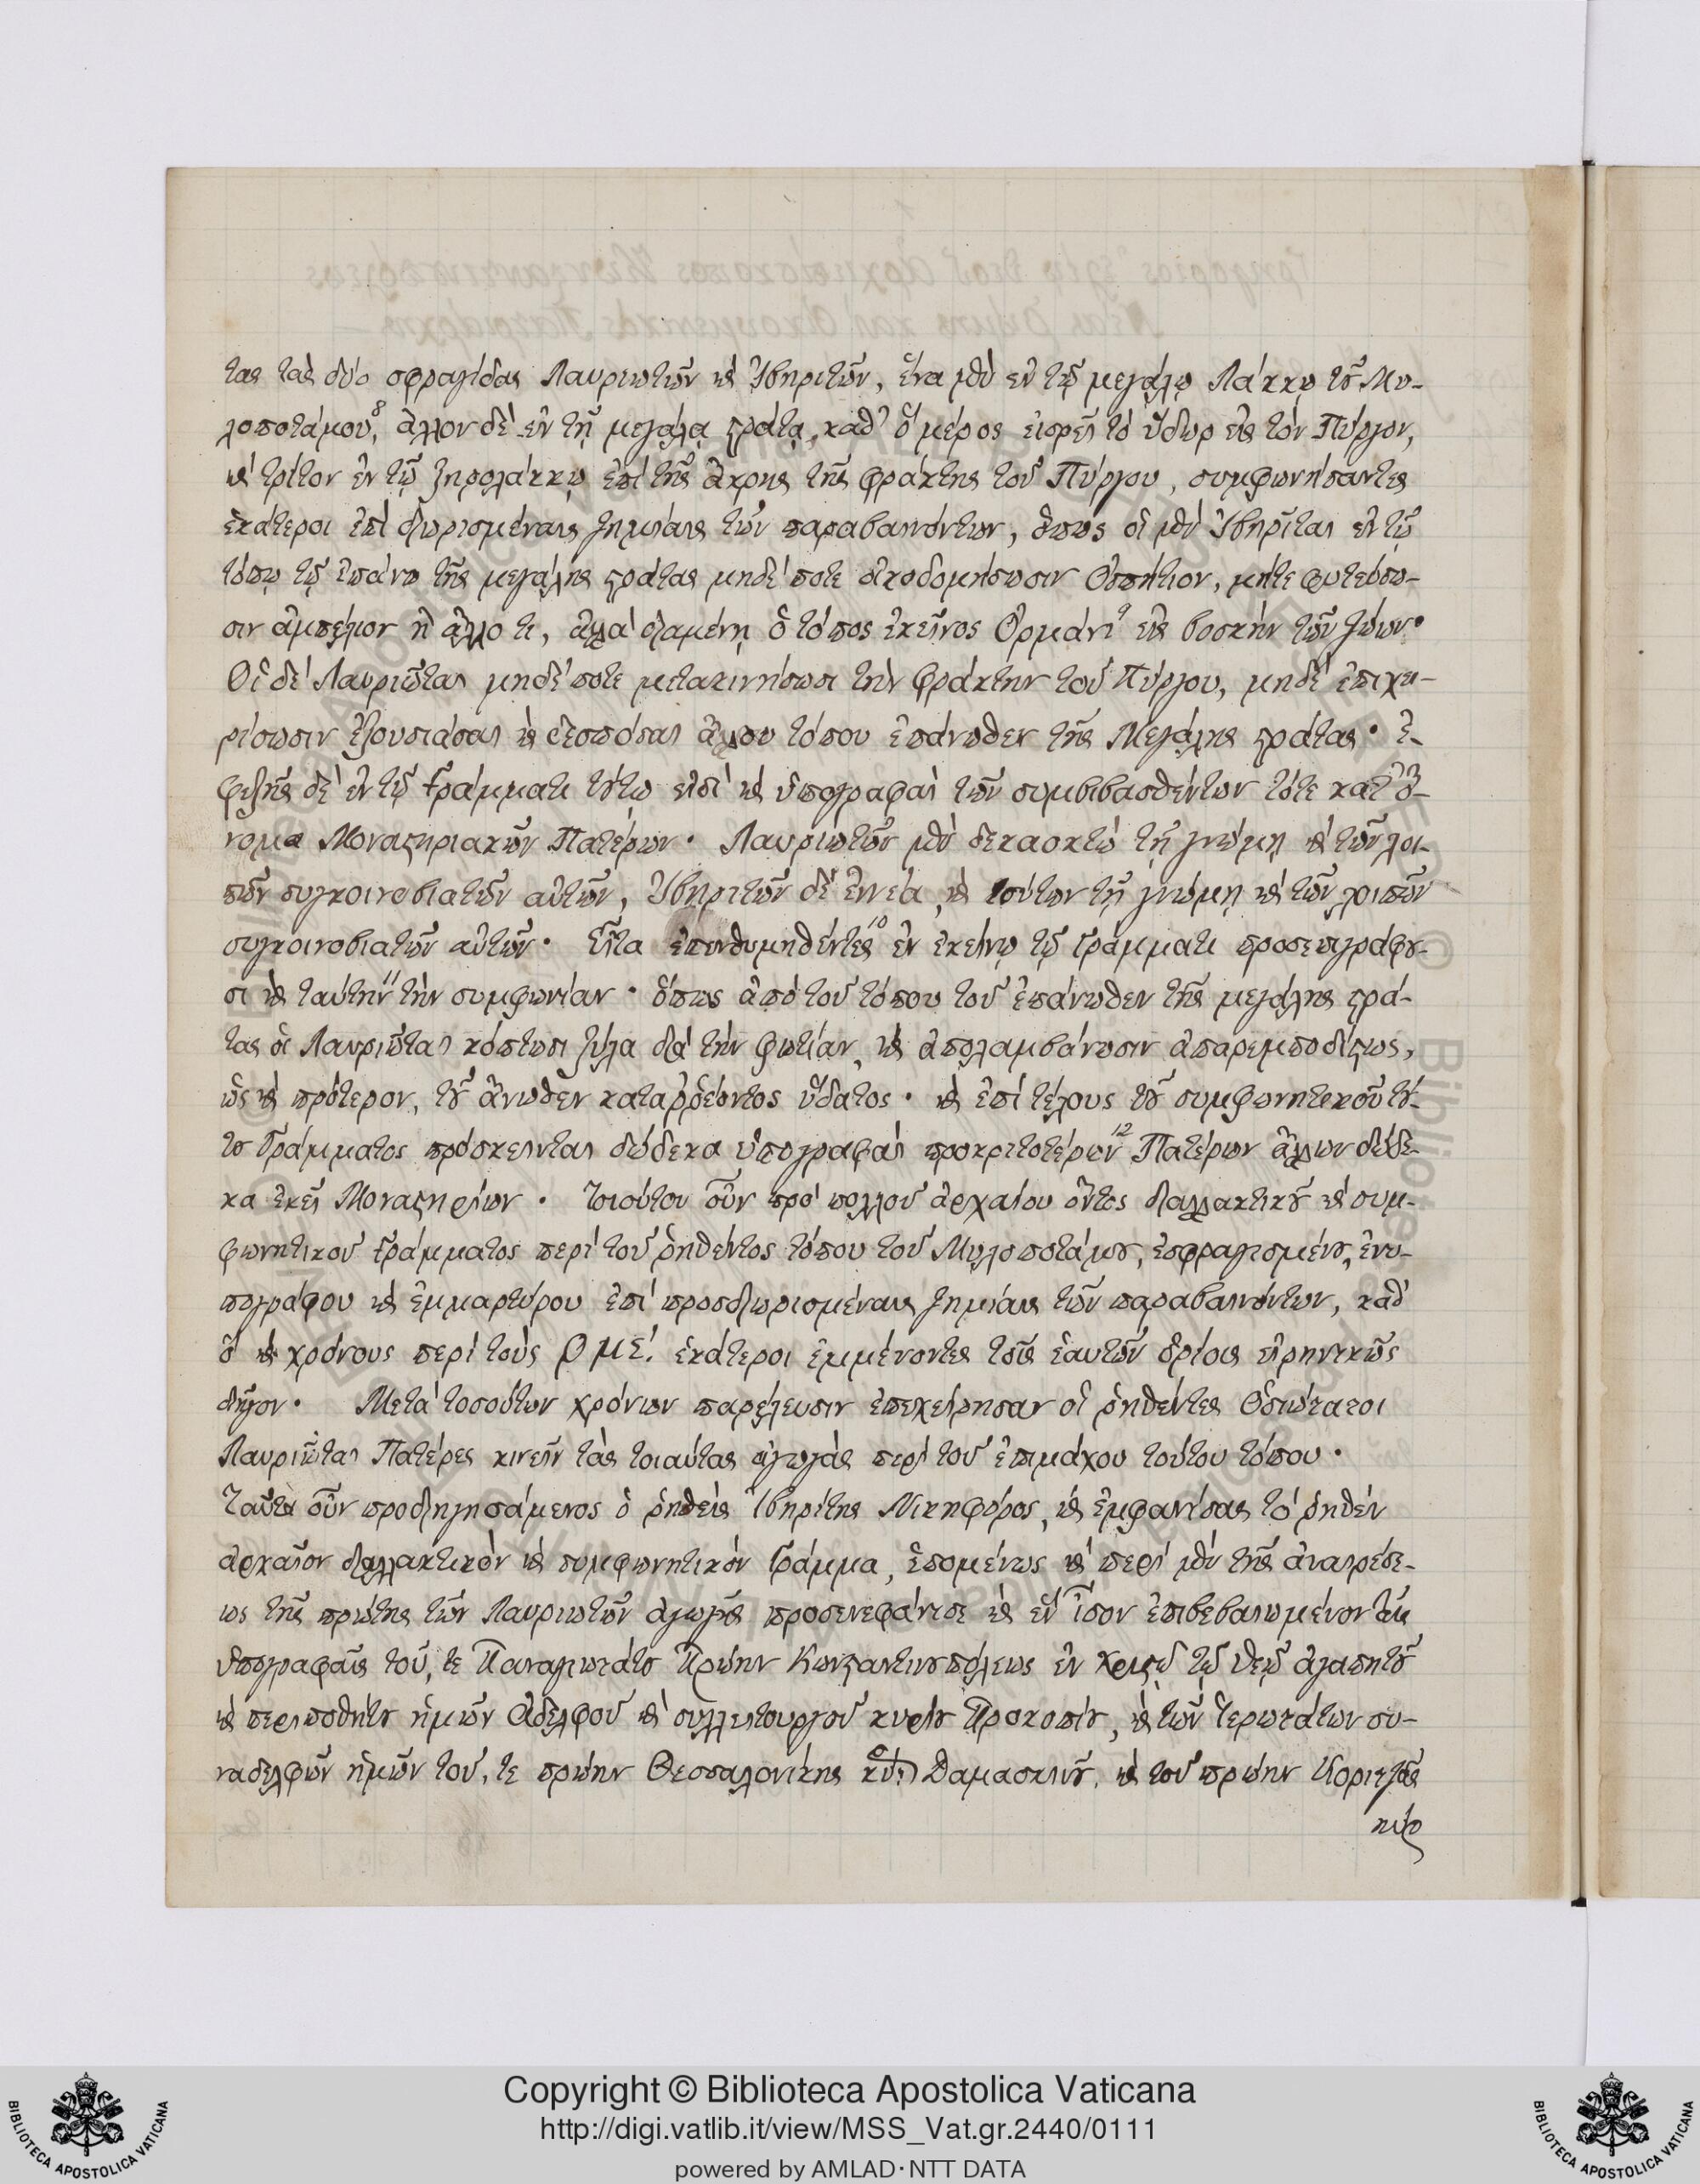 τας τὰς δύο σφραγίδας Λαυριωτῶν καὶ Ἰβηριτῶν, ἕνα μὲν ἐν τῷ μεγάλῳ Λάκκῳ τοῦ Μυ-
λοποτάμου,⁸ ἄλλον δὲ ἐν τῇ μεγάλᾳ στράτᾳ, καθ' ὃ μέρος εἰσρεῖ τὸ ὕδωρ εἰς τὸν Πύργον,
καὶ τρίτον ἐν τῷ ξηρολάκκῳ ἐπὶ τῆς ἄκρης τῆς φράκτης τοῦ Πύργου, συμφωνήσαντες
ἑκάτεροι ἐπὶ διωρισμέναις ζημίαις τῶν παραβαινόντων, ὅπως οἱ μὲν Ἰβηρῖται ἐν τῷ
τόπῳ τῷ ἐπάνω τῆς μεγάλης στράτας μηδέποτε οἰκοδομήσωσιν Ὀσπήτιον, μήτε φυτεύσω-
σιν ἀμπέλιον ἢ ἄλλο τι, ἀλλὰ διαμένῃ ὁ τόπος ἐκεῖνος Ὀρμάνι⁹ εἰς βοσκὴν τῶν ζώων·
Οἱ δὲ Λαυριῶται μηδέποτε μετακινήσωσι τὴν φράκτην τοῦ Πύργου, μηδὲ ἐπιχει-
ρίσωσιν ἐξουσιάσαι καὶ δεσπόσαι ἄλλου τόπου ἐπάνωθεν τῆς Μεγάλης στράτας· ἐ-
φεξῆς δὲ ἐν τῷ Γράμματι τούτῳ εἰσὶ καὶ ὑπογραφαὶ τῶν συμβιβασθέντων τότε κατ' ὄ-
νομα Μοναστηριακῶν Πατέρων· Λαυριωτῶν μὲν δεκαοκτὼ τῇ γνώμῃ καὶ τῶν λοι-
πῶν συγκοινοβιατῶν αὐτῶν, Ἰβηριτῶν δὲ ἐννέα, καὶ τούτων τῇ γνώμῃ καὶ τῶν λοιπῶν
συγκοινοβιατῶν αὐτῶν· Εἶτα ἐπενθυμηθέντες¹⁰ ἐν ἐκείνῳ τῷ Γράμματι προσεπιγράφου-
σι καὶ ταύτην¹¹ τὴν συμφωνίαν· ὅπως ἀπὸ τοῦ τόπου τοῦ ἐπάνωθεν τῆς μεγάλης στρά-
τας οἱ Λαυριῶται κόπτωσι ξύλα διὰ τὴν φωτίαν, καὶ ἀπολαμβάνωσιν ἀπαρεμποδίστως,
ὡς καὶ πρότερον, τοῦ ἄνωθεν καταῤῥέοντος ὕδατος· καὶ ἐπὶ τέλους τοῦ συμφωνητικοῦ τού-
του Γράμματος πρόσκεινται δώδεκα ὑπογραφαὶ προκριτοτέρων¹² Πατέρων ἄλλων δώδε-
κα ἐκεῖ Μοναστηρίων· Τοιούτου οὖν πρὸ πολλοῦ ἀρχαίου ὄντος διαλλακτικοῦ καὶ συμ-
φωνητικοῦ Γράμματος περὶ τοῦ ῥηθέντος τόπου τοῦ Μυλοποτάμου, ἐσφραγισμένου, ἐνυ-
πογράφου καὶ ἐμμαρτύρου ἐπὶ προσδιωρισμέναις ζημίαις τῶν παραβαινόντων, καθ'
ὃ καὶ χρόνους περὶ τοὺς ρμε! ἑκάτεροι ἐμμένοντες τοῖς ἑαυτῶν ὁρίοις εἰρηνικῶς
διῆγον· Μετὰ τοσούτων χρόνων παρέλευσιν ἐπεχείρησαν οἱ ῥηθέντες Ὁσιώτατοι
Λαυριῶται Πατέρες κινεῖν τὰς τοιαύτας ἀγωγὰς περὶ τοῦ ἐπιμάχου τούτου τόπου·
Ταῦτα οὖν προδιηγησάμενος ὁ ῥηθεὶς Ἰβηρίτης Νικηφόρος, καὶ ἐμφανίσας τὸ ῥηθὲν
ἀρχαῖον διαλλακτικὸν καὶ συμφωνητικὸν Γράμμα, ἑπομένως καὶ περὶ μὲν τῆς ἀναιρέσε-
ως τῆς πρώτης τῶν Λαυριωτῶν ἀγωγῆς προσενεφάνισε καὶ ἓν ἴσον ἐπιβεβαιωμένον ταῖς
ὑπογραφαῖς τοῦ, τε Παναγιωτάτου Πρώην Κωνσταντινουπόλεως ἐν Χριστῷ τῷ Θεῷ ἀγαπητοῦ
καὶ περιποθήτου ἡμῶν Ἀδελφοῦ καὶ συλλειτουργοῦ κυρίου Προκοπίου, καὶ τῶν Ἱερωτάτων συ-
ναδελφῶν ἡμῶν τοῦ, τε πρώην Θεσσαλονίκης κὺρ Δαμασκηνοῦ, καὶ τοῦ πρώην Κοριτζᾶς
κὺρ